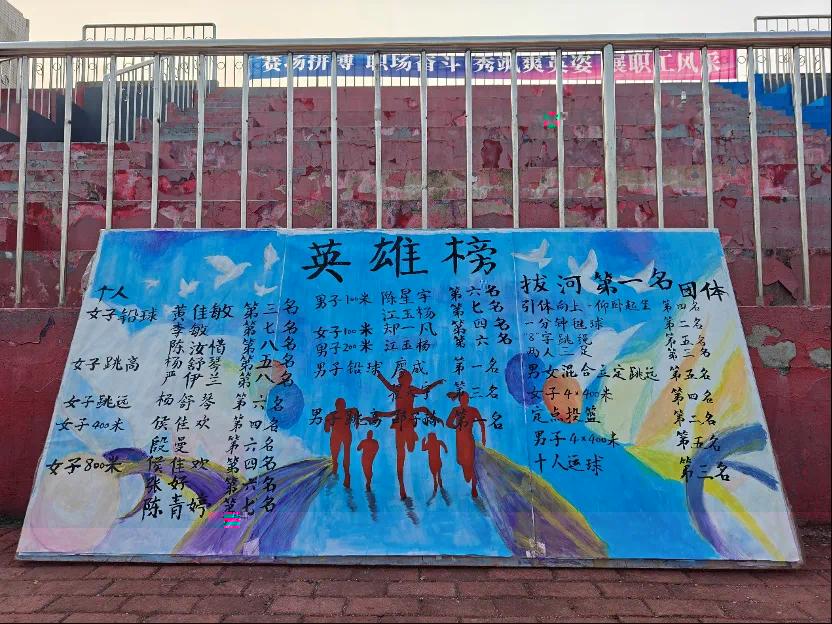 赛场拼搏 职场奋斗 秀飒爽英姿 展职工风采
英雄榜
个人
女子铅球 黄佳敏 第三名
李敏 第七名
陈汝惜 第八名
女子跳高 杨舒琴 第五名
严伊兰 第八名
女子跳远 杨舒琴 第六名
女子400米 侯佳欢 第四名
段曼 第六名
女子800米 侯佳欢 第四名
张好 第六名
陈青婷 第七名
男子100米 陈星宇 第六名
江玉杨 第七名
女子100米 郑一凡 第四名
男子200米 江玉杨 第六名
男子铅球 廖威 第一名
第三名
男子跳高 第一名
拔河 第一名
团体
引体向上·仰卧起坐 第四名
一分钟毽球 第二名
"8"字跳绳 第五名
两人三足 第三名
男女混合立定跳远 第五名
女子4×400米 第四名
定点投篮 第二名
男子4×400米 第五名
十人运球 第三名